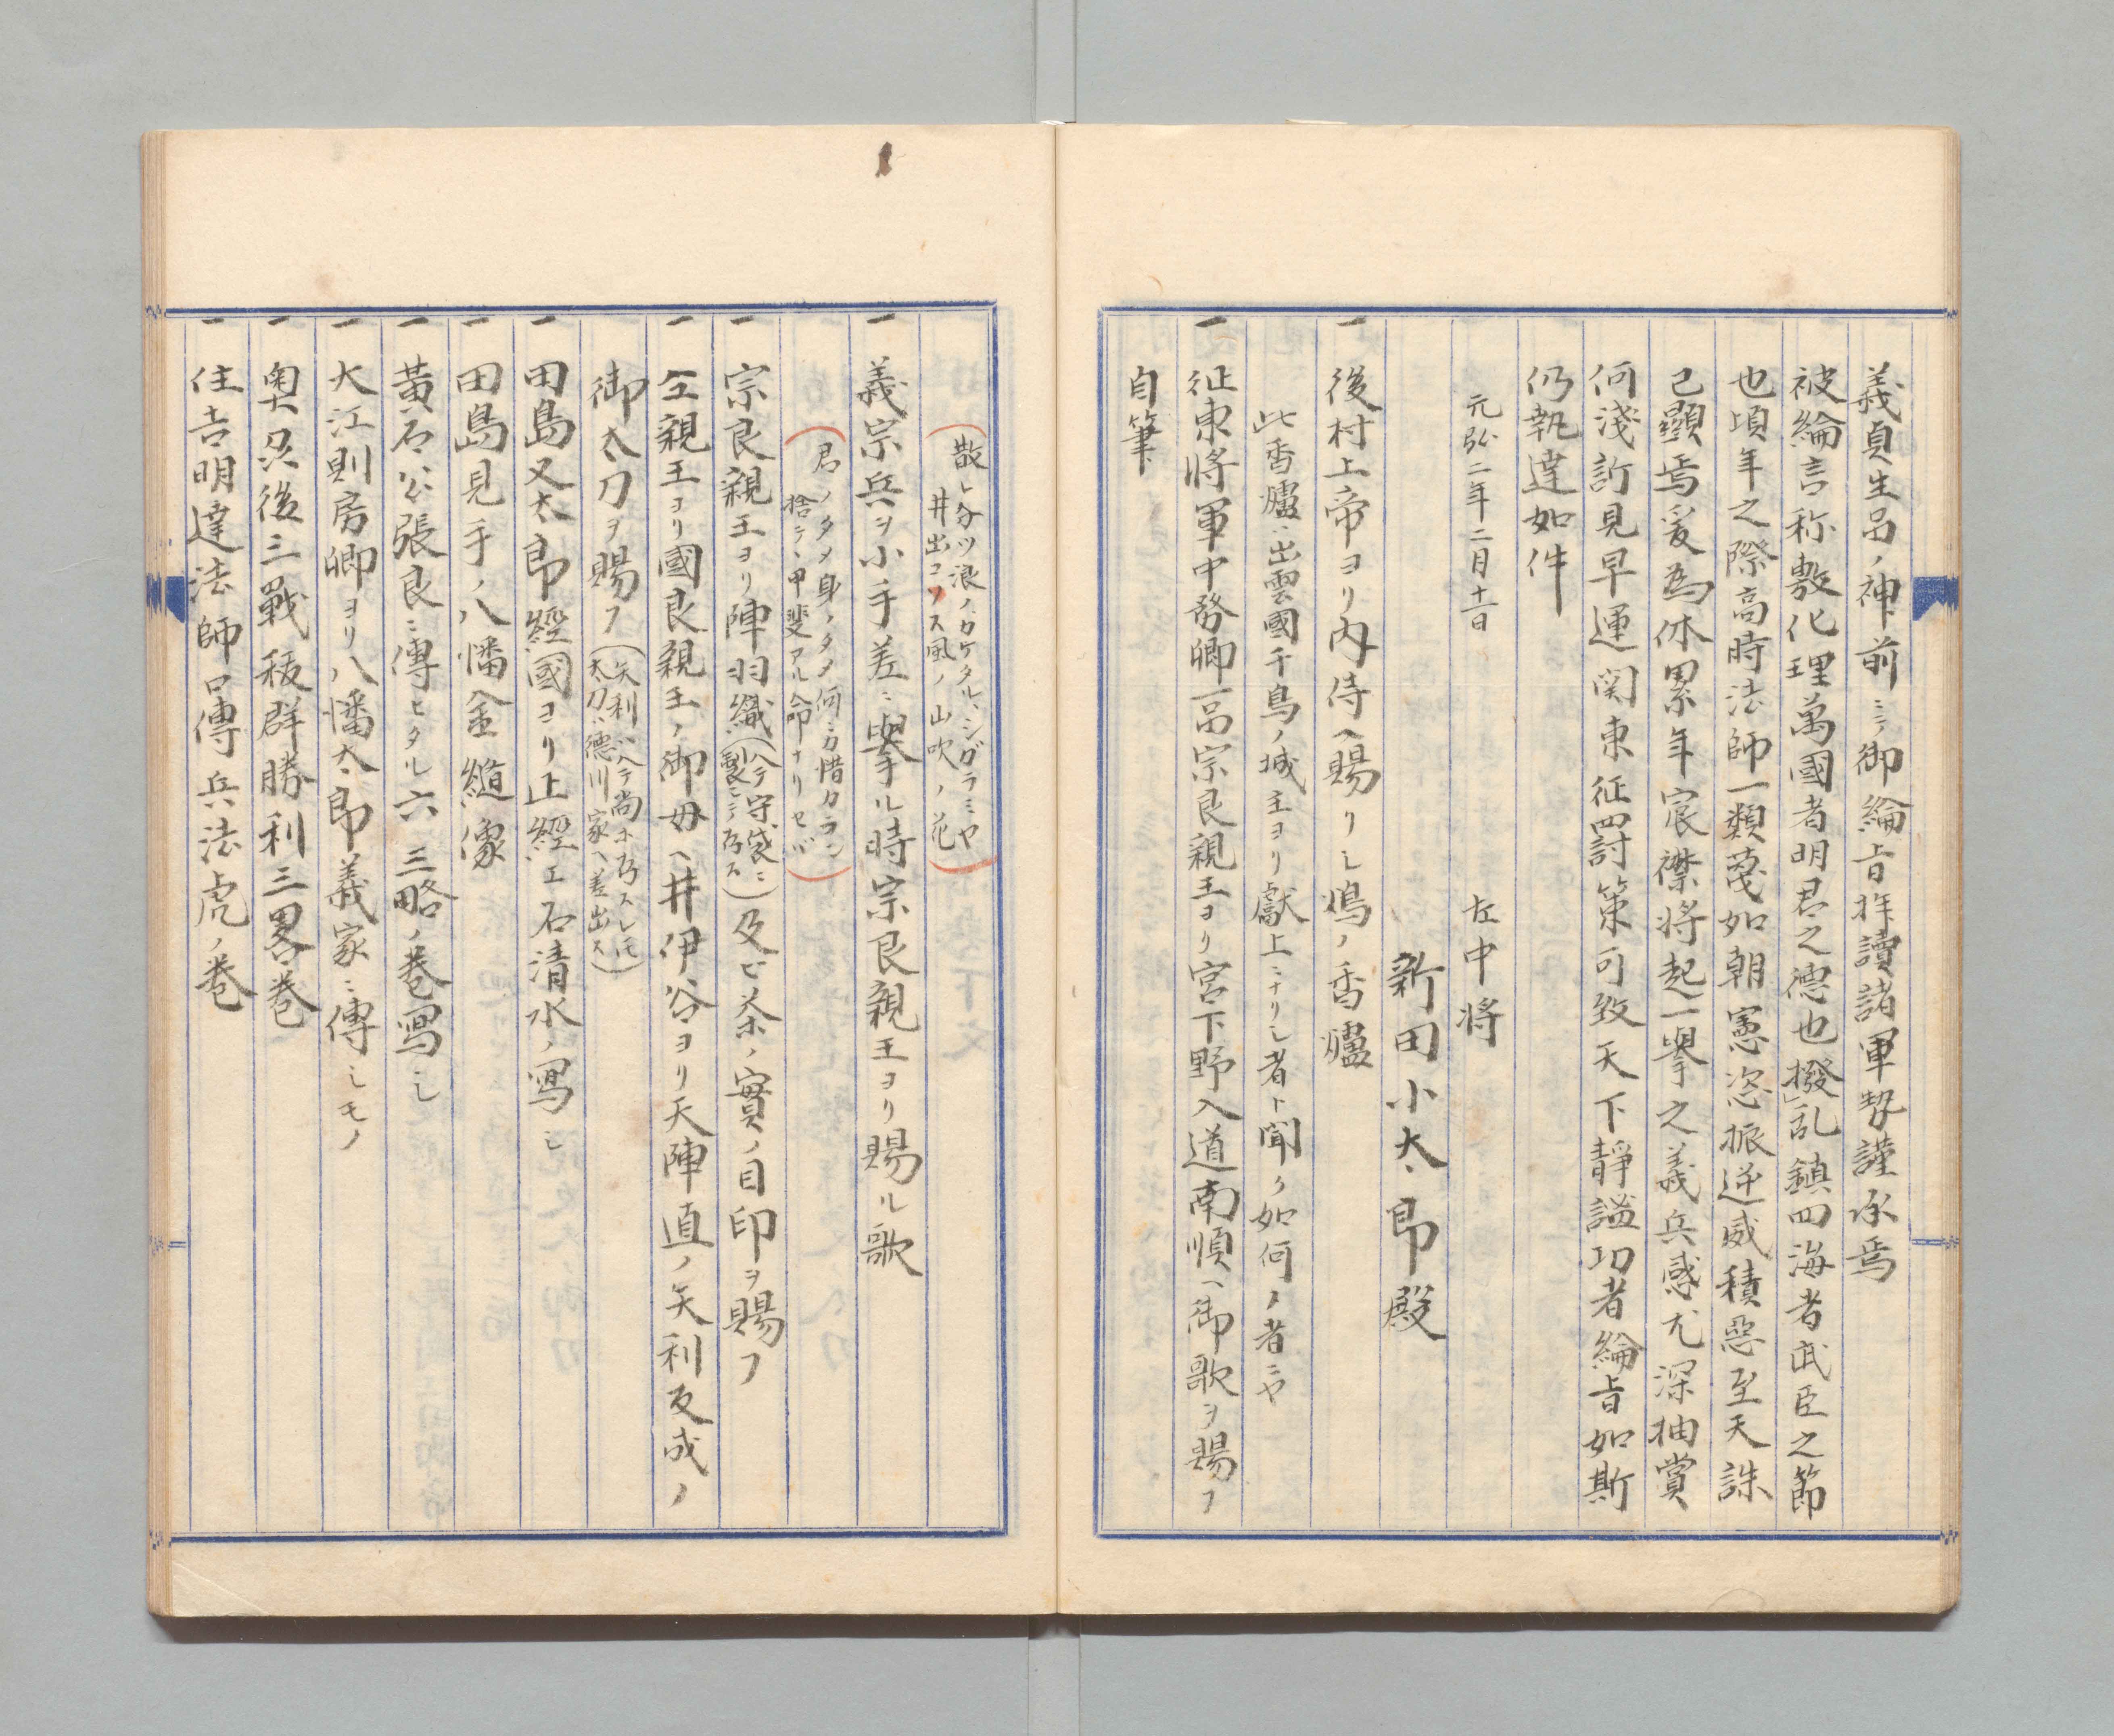 義貞生品ノ神前ニテ御綸旨拝讀諸軍勢謹承焉
被綸言称敷化理萬國者明君之德也撥乱鎮四海者武臣之節
也頃年之際高時法師一類蔑如朝憲恣振逆威積惡至天誅
已顯焉爰為休累年宸襟将起一擧之義兵感尤深抽賞
何淺訢見早運関東征罸討策可致天下靜謐功者綸旨如斯
仍執達如件
元弘二年二月十一日
左中将
新田小太郎殿
一 後村上帝ヨリ内侍ヘ賜リシ鴆ノ香爐
此香爐ハ出雲國千鳥ノ城主ヨリ獻上ニナリシ者ト聞ク如何ノ者ニヤ
一 征東將軍中務卿一品宗良親王ヨリ宮下野入道南順ヘ御歌ヲ賜フ
自筆
(散レタツ浪ノカケタルシガラミヤ
井出コソス風ノ山吹ノ花)
一 義宗兵ヲ小手差ニ擧ル時宗良親王ヨリ賜ル歌
(君ノタメ身ノタメ何カ惜カラン
捨テヽ甲斐アル命ナリセバ)
一 宗良親王ヨリ陣羽織(今ハ守袋ニ
製シ存ス)及ビ茶ノ實ノ自印ヲ賜フ
一 仝親王ヨリ國良親王ノ御母ヘ井伊谷ヨリ天陣直ノ矢利友成ノ
御太刀ヲ賜フ(矢利ハ今尚ホ存スレモ
太刀ハ德川家ヘ差出ス)
一 田島又太郎經國ヨリ止經エ石清水ノ寫シ
一 田島見手ノ八幡金縫像
一 黃石公張良ニ傳ヒタル六三略ノ巻寫シ
一 大江則房卿ヨリ八幡太郎義家ニ傳シモノ
一 奧只後三戰秡群勝利三畧巻
一 住吉明達法師口傳兵法虎ノ巻